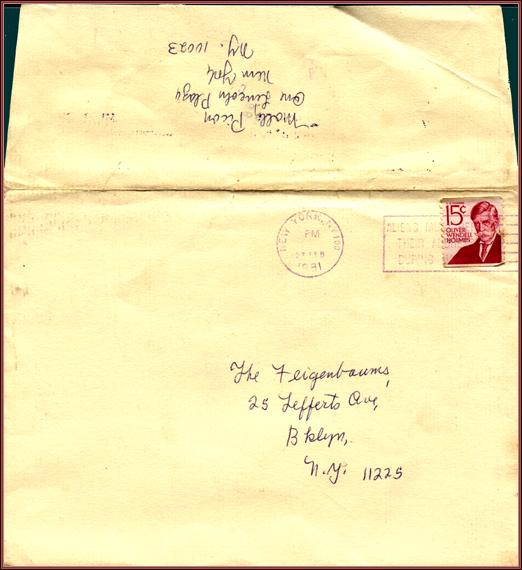 Molly Picon
One Lincoln Plaza
New York
N.Y. 10023
NEW YORK, NY 100
PM
27 FEB
1981
ALIENS
THEIR
DURING
15¢
OLIVER
WENDELL
HOLMES
The Feigenbaums,
25 Lefferts Ave,
Bklyn,
N.Y. 11225